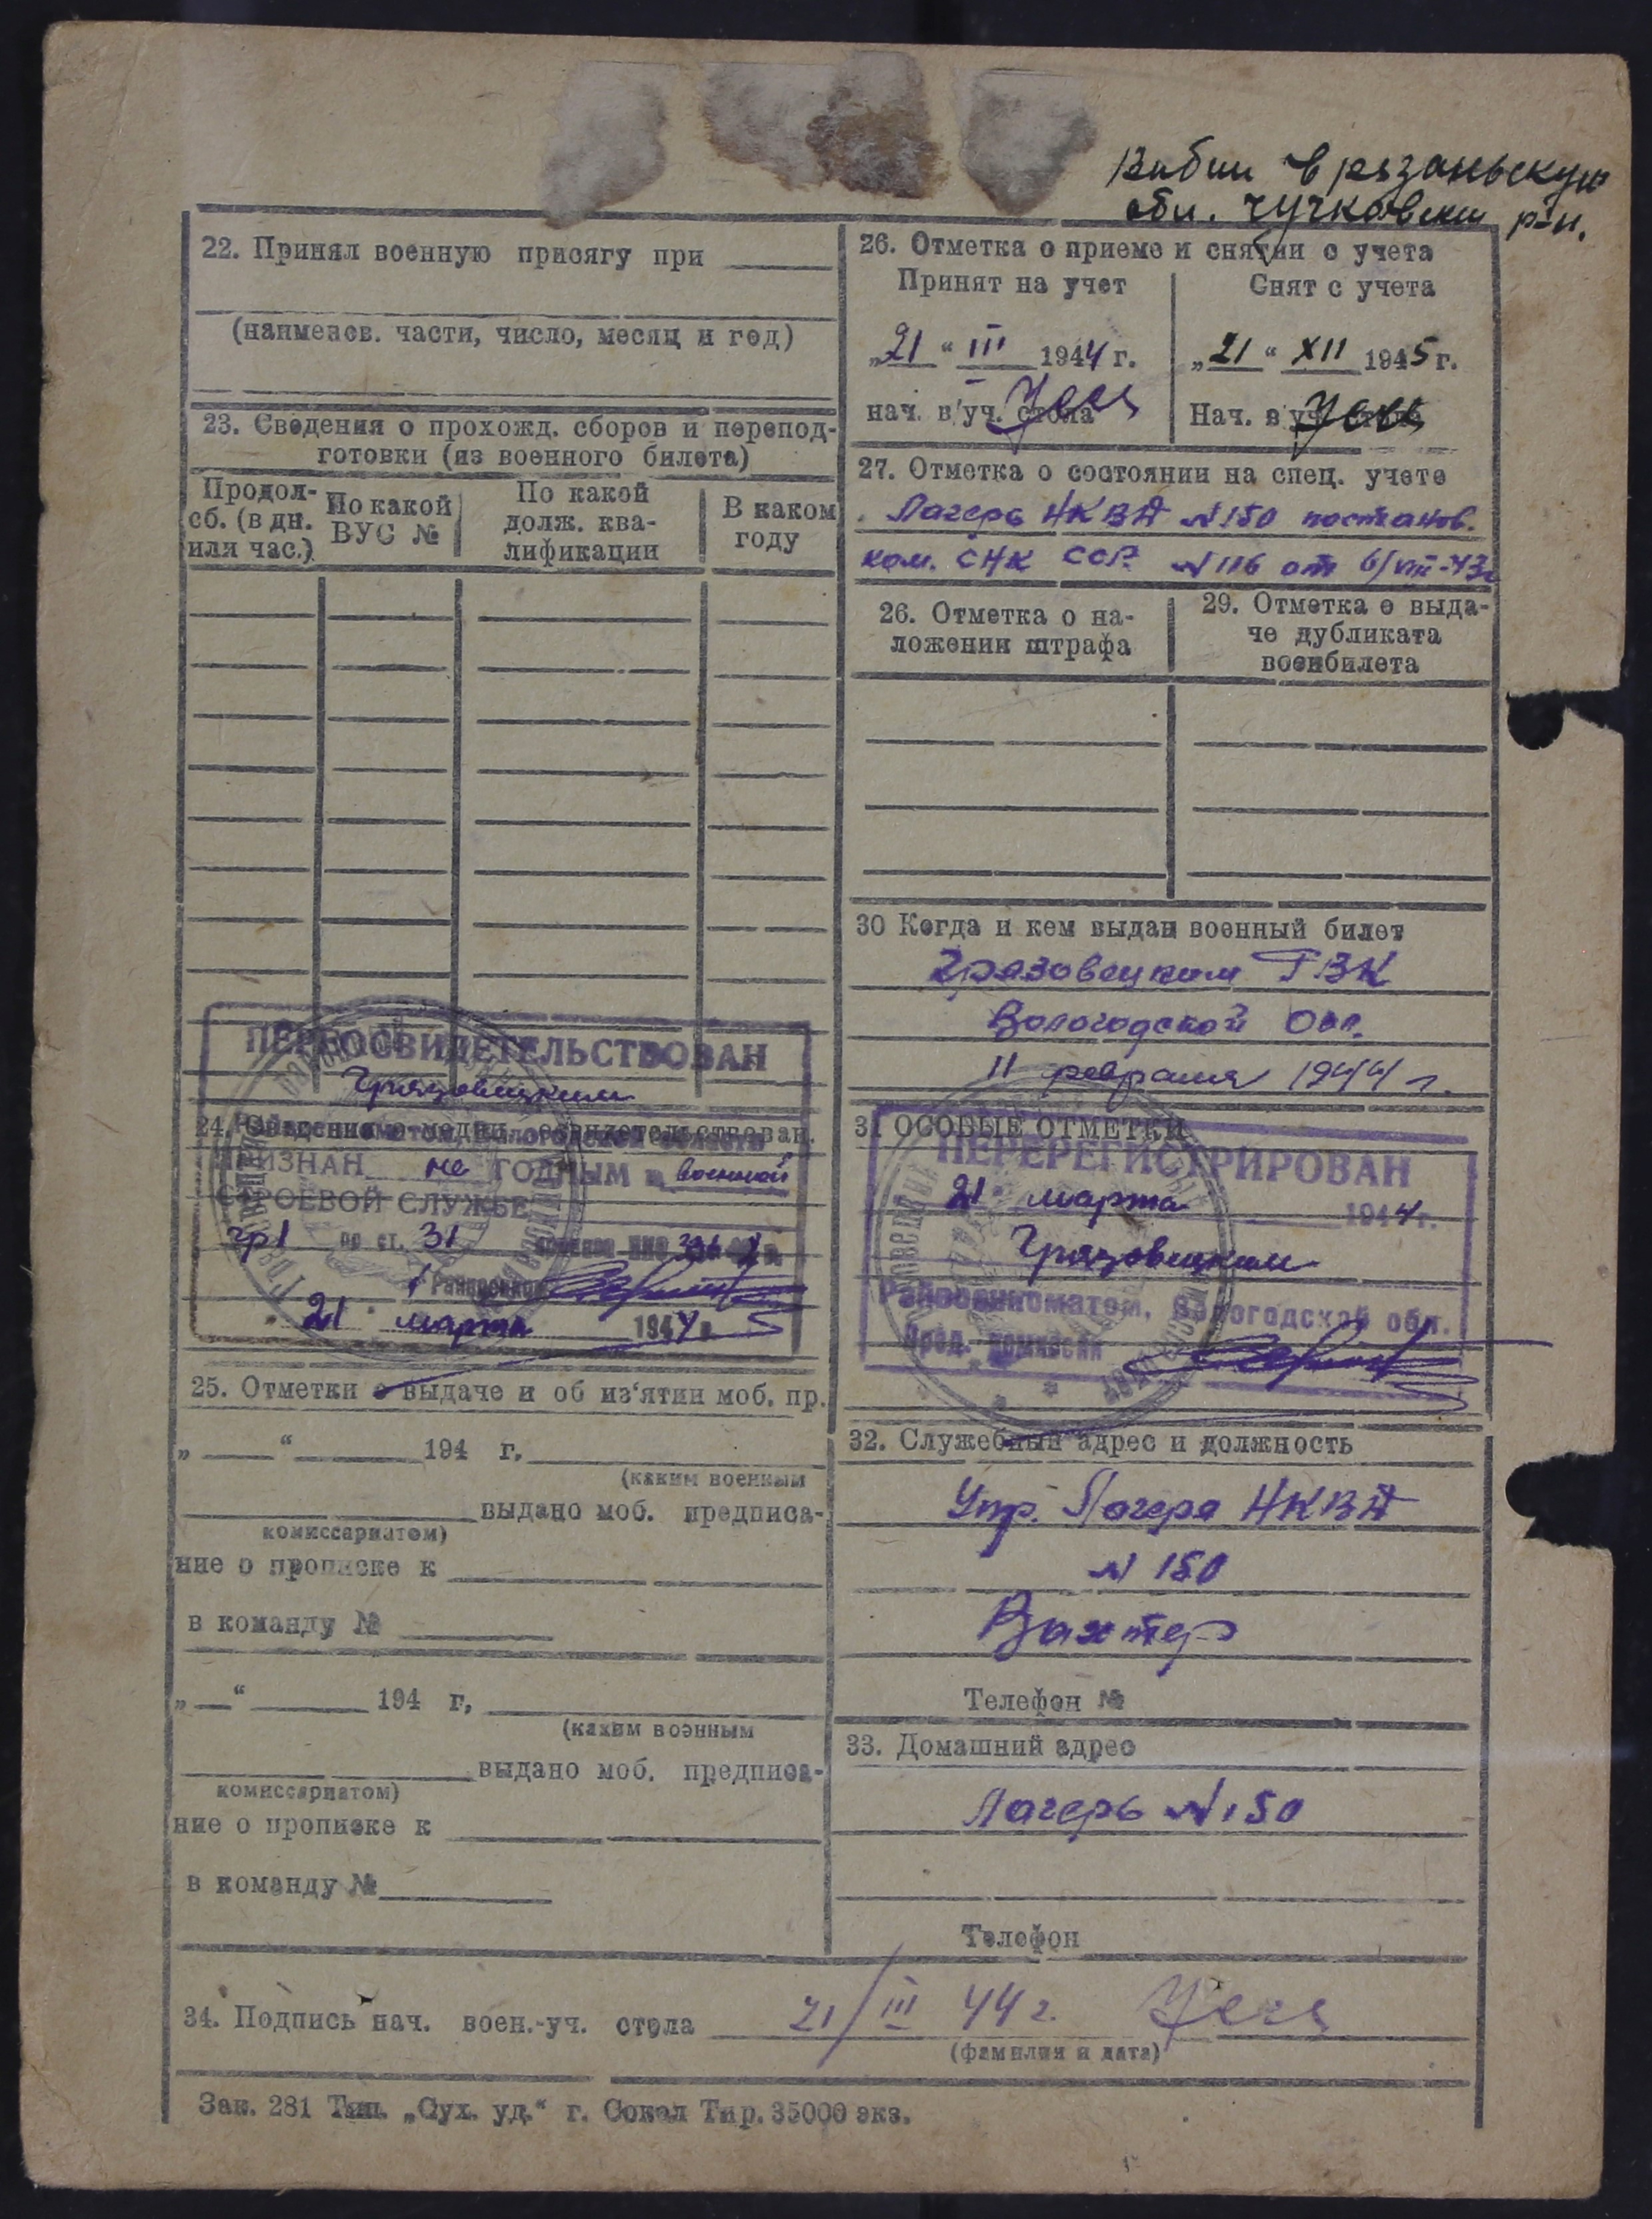 в рязаньскую
обл. Чучковски р-н.
22. Принял военную присягу при
(наименов. части, число, месяц и год)
23. Сведения о прохожд. сборов и перепод-
готовки (из военного билета)
Продол-
сб. (в дн.
или час.)
По какой
ВУС №
По какой
долж. ква-
лификации
В каком
году
ПЕРЕОСВИДЕТЕЛЬСТВОВАН
Грязовецким
24.
ПРИЗНАН не ГОДНЫМ к военной
СТРОЕВОЙ СЛУЖБЕ
гр 1 по ст. 31
21 марта 1944 г.
25. Отметки о выдаче и об из'ятии моб. пр.
„ “ 194 г,
(каким военным
выдано моб. предписа-
комиссариатом)
ние о прописке к
в команду №
„ “ 194 г,
(каким военным
выдано моб. предписа-
комиссариатом)
ние о прописке к
в команду №
26. Отметка о приеме и снятии с учета
Принят на учет
„21“ III 1944 г.
нач. в/уч. стола
Снят с учета
„21“ XII 1945 г.
Нач. в уч. стола
27. Отметка о состоянии на спец. учете
Лагерь НКВД №150 постанов.
ком. СНК ССР. №116 от 6/VIII-43г
26. Отметка о на-
ложении штрафа
29. Отметка о выда-
че дубликата
военбилета
30 Когда и кем выдан военный билет
Грязовецким РВК
Вологодской Обл.
11 февраля 1944 г.
31 ОСОБЫЕ ОТМЕТКИ
ПЕРЕРЕГИСТРИРОВАН
21 марта 1944 г.
Грязовецким
Райвоенкоматом, Вологодской обл.
Пред. комиссии
32. Служебный адрес и должность
Упр. Лагеря НКВД
№ 150
Вахтер
Телефон №
33. Домашний адрес
Лагерь №150
Телефон
34. Подпись нач. воен.-уч. стола 21/III 44 г.
(фамилия и дата)
Зак. 281 Тип. „Сух. уд.“ г. Сокол Тир. 35000 экз.